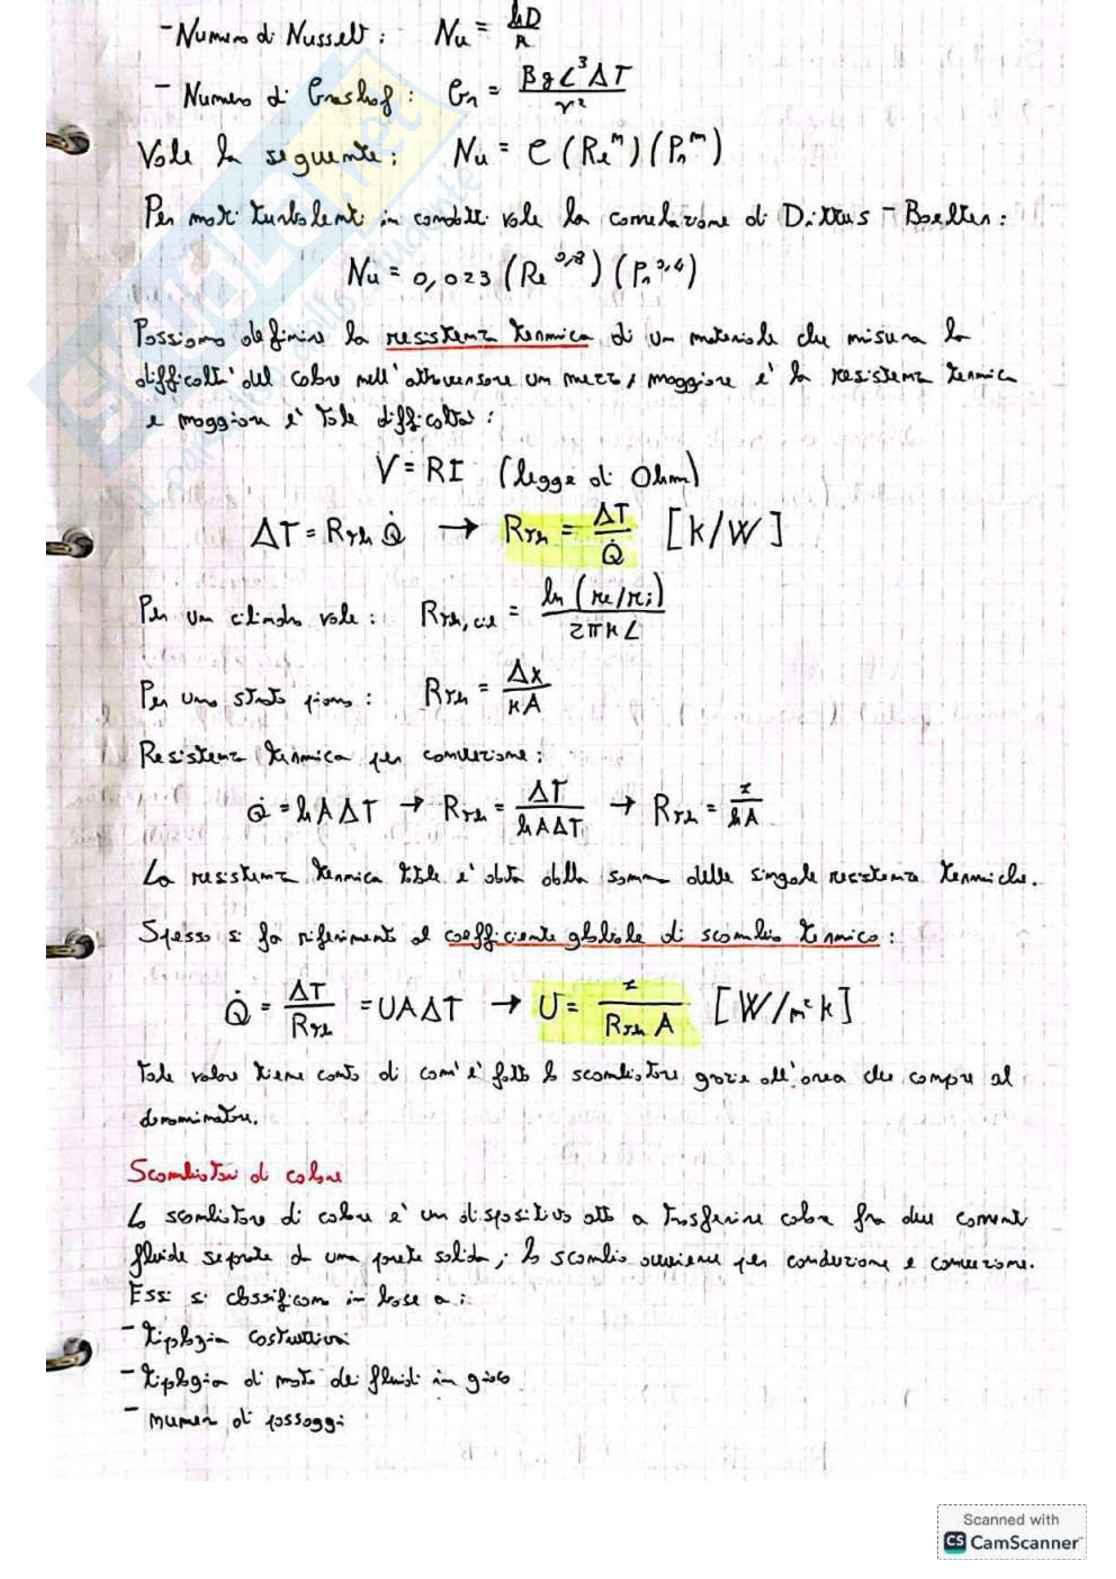 - Numero di Nusselt: Nu = hD/k
- Numero di Grashof: Gr = βgL³ΔT/ν²
Vale la seguente: Nu = C (Re^m) (Pr^n)
Per moti turbolenti in condotti vale la correlazione di Dittus - Boelter:
Nu = 0,023 (Re^0,8) (Pr^0,4)
Possiamo definire la resistenza termica di un materiale che misura la
difficolta' del calore nell'attraversare un mezzo, maggiore e' la resistenza termica
e maggiore e' tale difficolta':
V = RI (legge di Ohm)
ΔT = RTh Q̇ → RTh = ΔT/Q̇ [K/W]
Per un cilindro vale: RTh,cil = ln (re/ri)/2πkL
Per uno strato piano: RTh = Δx/kA
Resistenza termica per convezione:
Q̇ = hAΔT → RTh = ΔT/hAΔT → RTh = 1/hA
La resistenza termica totale e' data dalla somma delle singole resistenze termiche.
Spesso si fa riferimento al coefficiente globale di scambio termico:
Q̇ = ΔT/RTh = UAΔT → U = 1/RTh A [W/m²K]
Tale valore tiene conto di com'e' fatto lo scambiatore grazie all'area che compare al
denominatore.
Scambiatori di calore
Lo scambiatore di calore e' un dispositivo atto a trasferire calore fra due correnti
fluide separate da una parete solida; lo scambio avviene per conduzione e convezione.
Essi si classificano in base a:
- tipologia costruttiva
- tipologia di moto dei fluidi in gioco
- numero di passaggi
SKUOLA.net
Scanned with
CS CamScanner